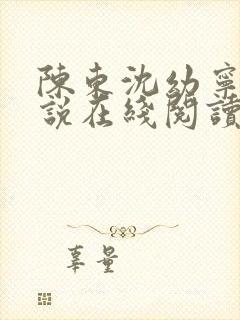 陳東沈幼寧
説在綫閱讀
辜量